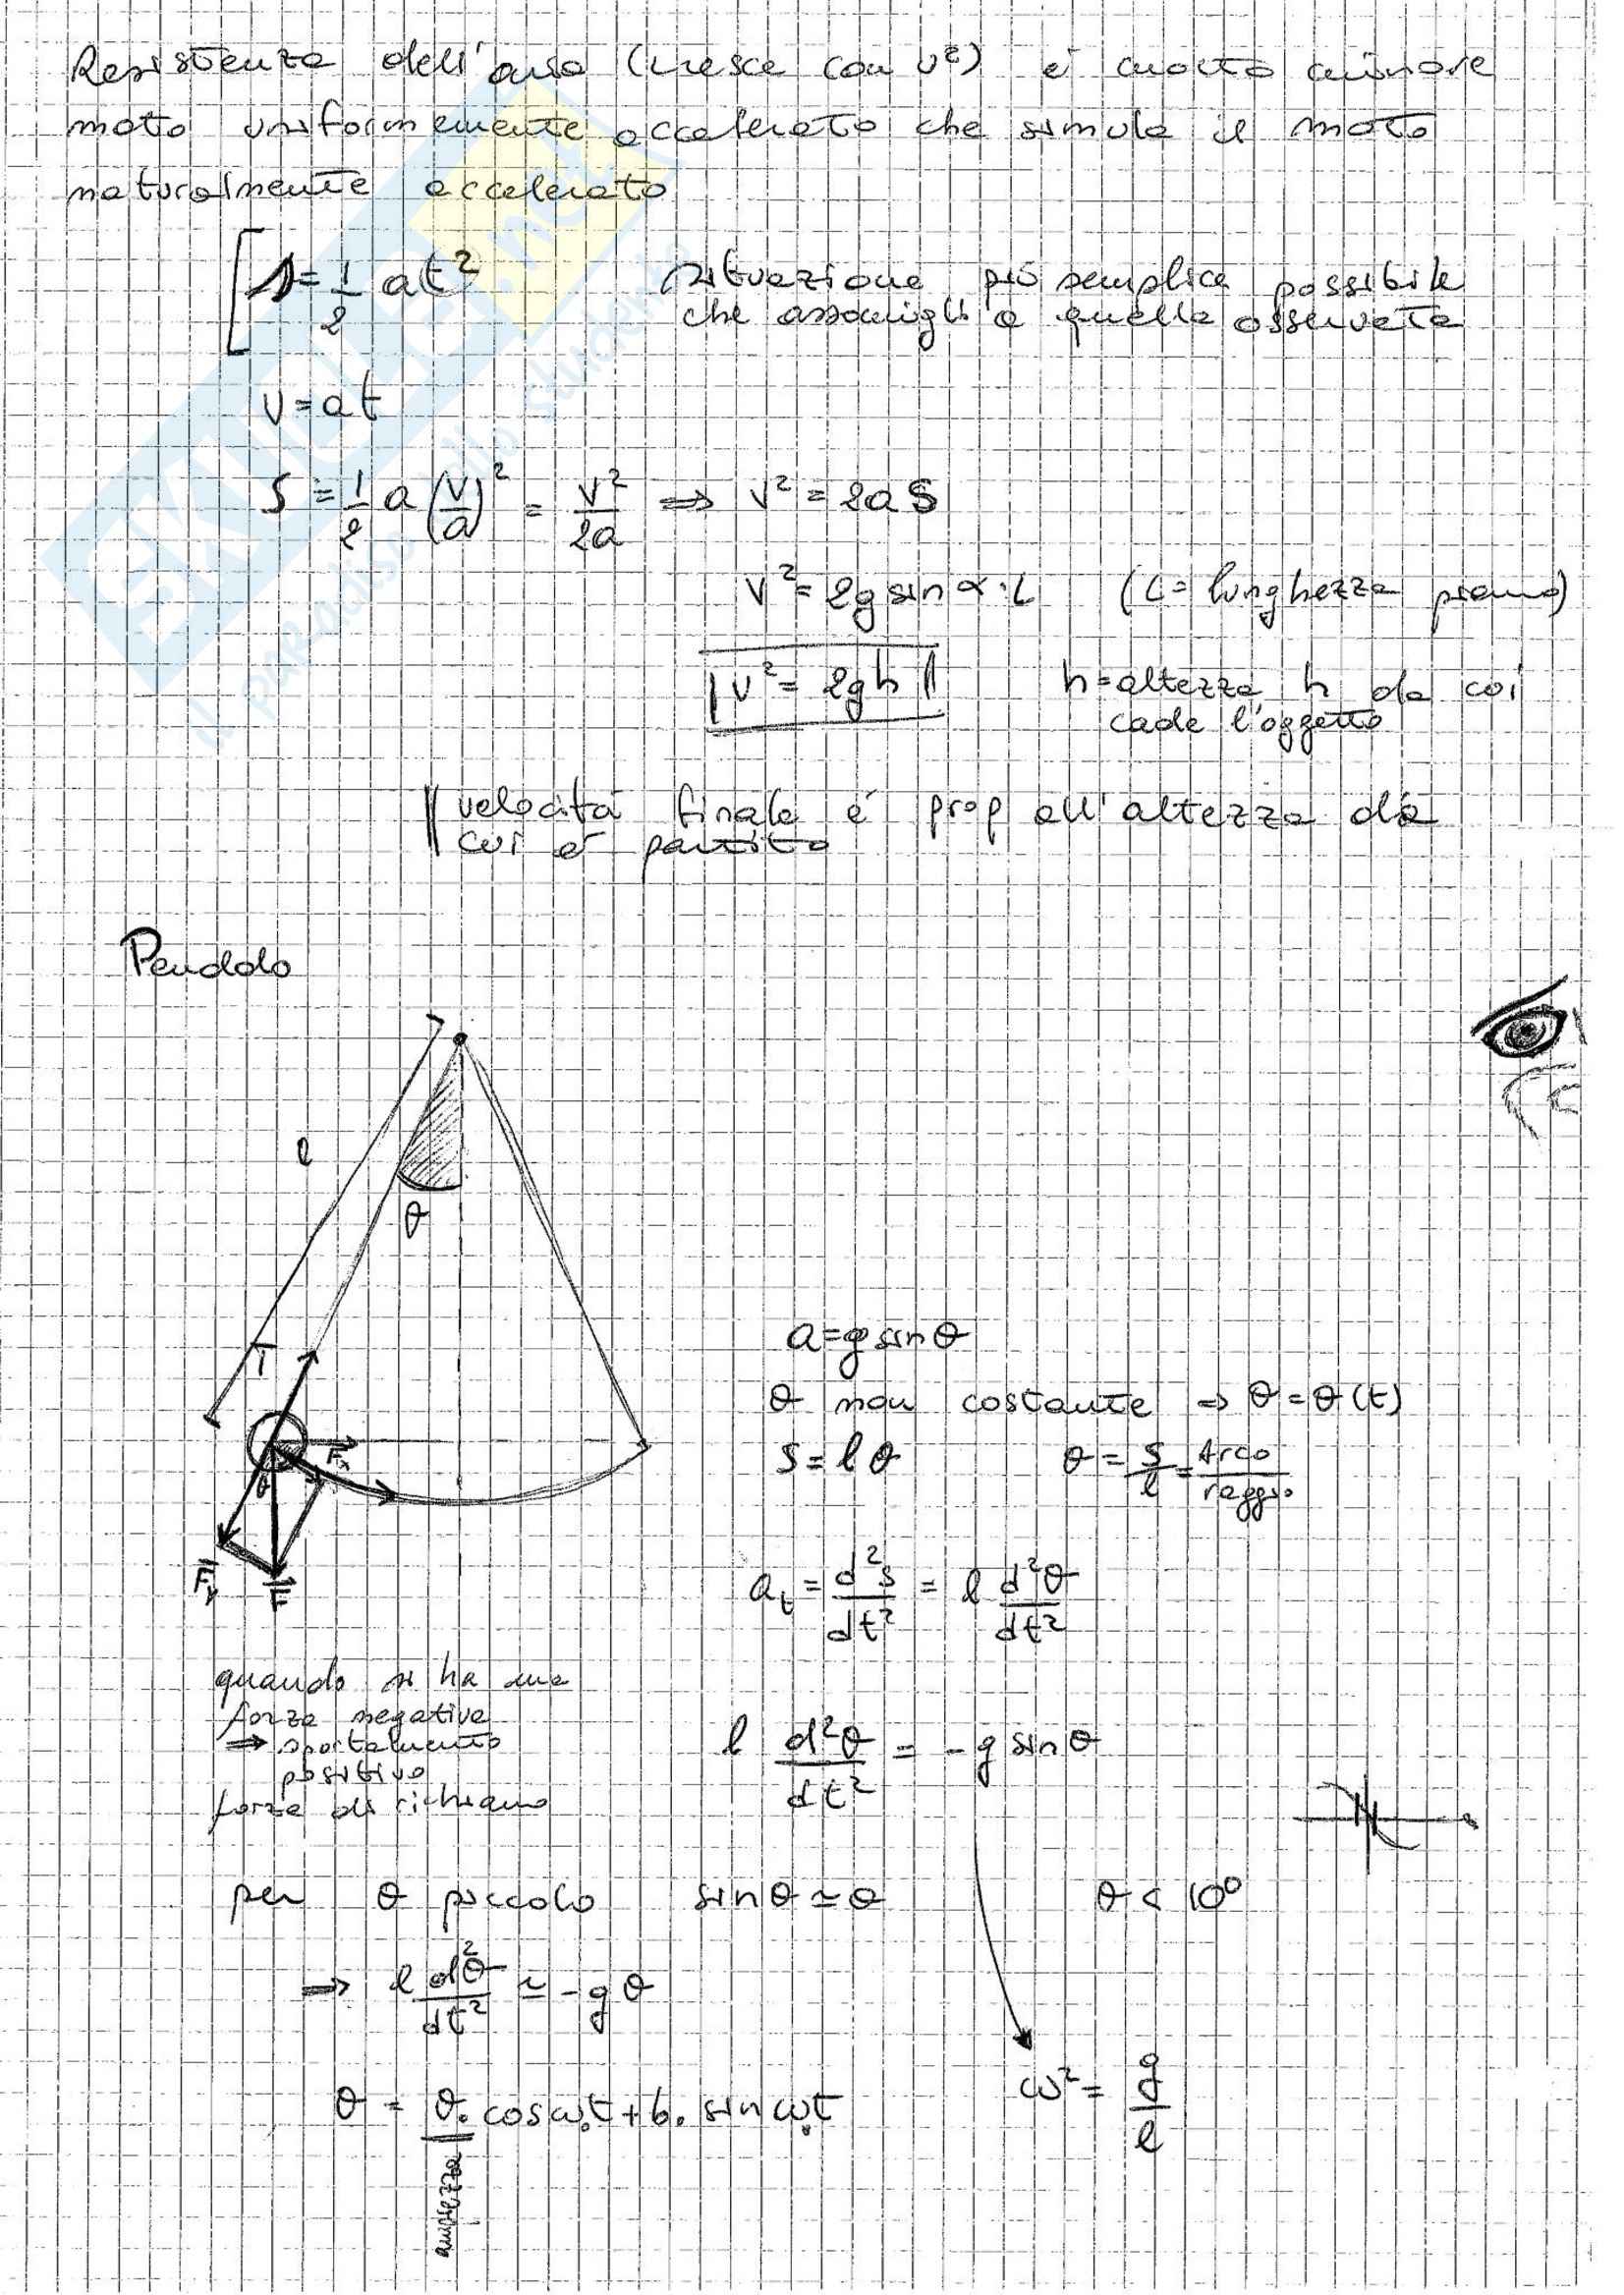 Resistenza dell'aria (cresce con v²) è molto minore
moto uniformemente accelerato che simula il moto
naturalmente accelerato
s = 1/2 at² situazione più semplice possibile
che assomigli a quella osservata
v = at
s = 1/2 a (v/a)² = v²/2a ⇒ v² = 2aS
v² = 2g sin α · L (L = lunghezza piano)
v² = 2gh h = altezza h da cui
cade l'oggetto
velocità finale è prop all'altezza da
cui è partito
Pendolo
l
θ
T
Fx
θ
Fy
F
a = g sin θ
θ non costante ⇒ θ = θ(t)
s = l θ θ = s/l = Arco/raggio
a_t = d²s/dt² = l d²θ/dt²
quando si ha una
forza negativa
⇒ spostamento
positivo
forza di richiamo
l d²θ/dt² = -g sin θ
per θ piccolo sin θ ≃ θ θ < 10°
⇒ l d²θ/dt² ≃ -g θ
θ = θ₀ cos ω₀t + b₀ sin ω₀t
ω² = g/l
ampiezza
SKUOLA.net
Il paradiso dello studente